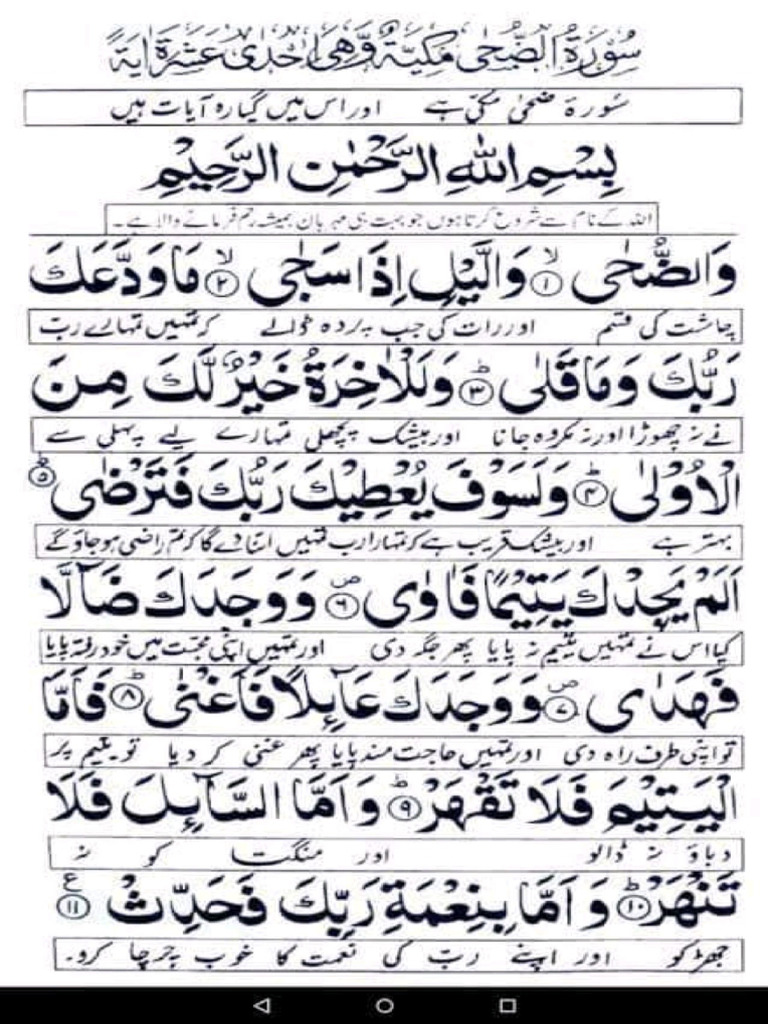 سُوْرَةُ الضُّحٰى مَكِّيَّةٌ وَّهِيَ اِحْدٰى عَشْرَةَ اٰيَةً
سُورۂ ضحیٰ مکیّ ہے اور اس میں گیارہ آیات ہیں
بِسْمِ اللّٰهِ الرَّحْمٰنِ الرَّحِيْمِ
اللہ کے نام سے شروع کرتا ہوں جو بہت ہی مہربان ہمیشہ رحم فرمانے والا ہے ۔
وَالضُّحٰى ۙ﴿۱﴾ وَالَّيْلِ اِذَا سَجٰى ۙ﴿۲﴾ مَا وَدَّعَكَ
چاشت کی قسم اور رات کی جب پردہ ڈالے کہ تمہیں تمہارے ربّ
رَبُّكَ وَمَا قَلٰى ؕ﴿۳﴾ وَلَلْاٰخِرَةُ خَيْرٌ لَّكَ مِنَ
نے نہ چھوڑا اور نہ مکروہ جانا اور بیشک پچھلی تمہارے لیے پہلی سے
الْاُوْلٰى ؕ﴿۴﴾ وَلَسَوْفَ يُعْطِيْكَ رَبُّكَ فَتَرْضٰى ؕ﴿۵﴾
بہتر ہے اور بیشک قریب ہے کہ تمہارا رب تمہیں اتنا دے گا کہ تم راضی ہو جاؤ گے
اَلَمْ يَجِدْكَ يَتِيْمًا فَاٰوٰى ۪﴿۶﴾ وَوَجَدَكَ ضَآلًّا
کیا اس نے تمہیں یتیم نہ پایا پھر جگہ دی اور تمہیں اپنی محبّت میں خود رفتہ پایا
فَهَدٰى ۪﴿۷﴾ وَوَجَدَكَ عَآئِلًا فَاَغْنٰى ؕ﴿۸﴾ فَاَمَّا
تو اپنی طرف راہ دی اور تمہیں حاجت مند پایا پھر غنی کر دیا تو یتیم پر
الْيَتِيْمَ فَلَا تَقْهَرْ ؕ﴿۹﴾ وَاَمَّا السَّآئِلَ فَلَا
دباؤ نہ ڈالو اور منگتا کو نہ
تَنْهَرْ ؕ﴿۱۰﴾ وَاَمَّا بِنِعْمَةِ رَبِّكَ فَحَدِّثْ ﴿۱۱﴾ ع
جھڑکو اور اپنے ربّ کی نعمت کا خوب چرچا کرو۔